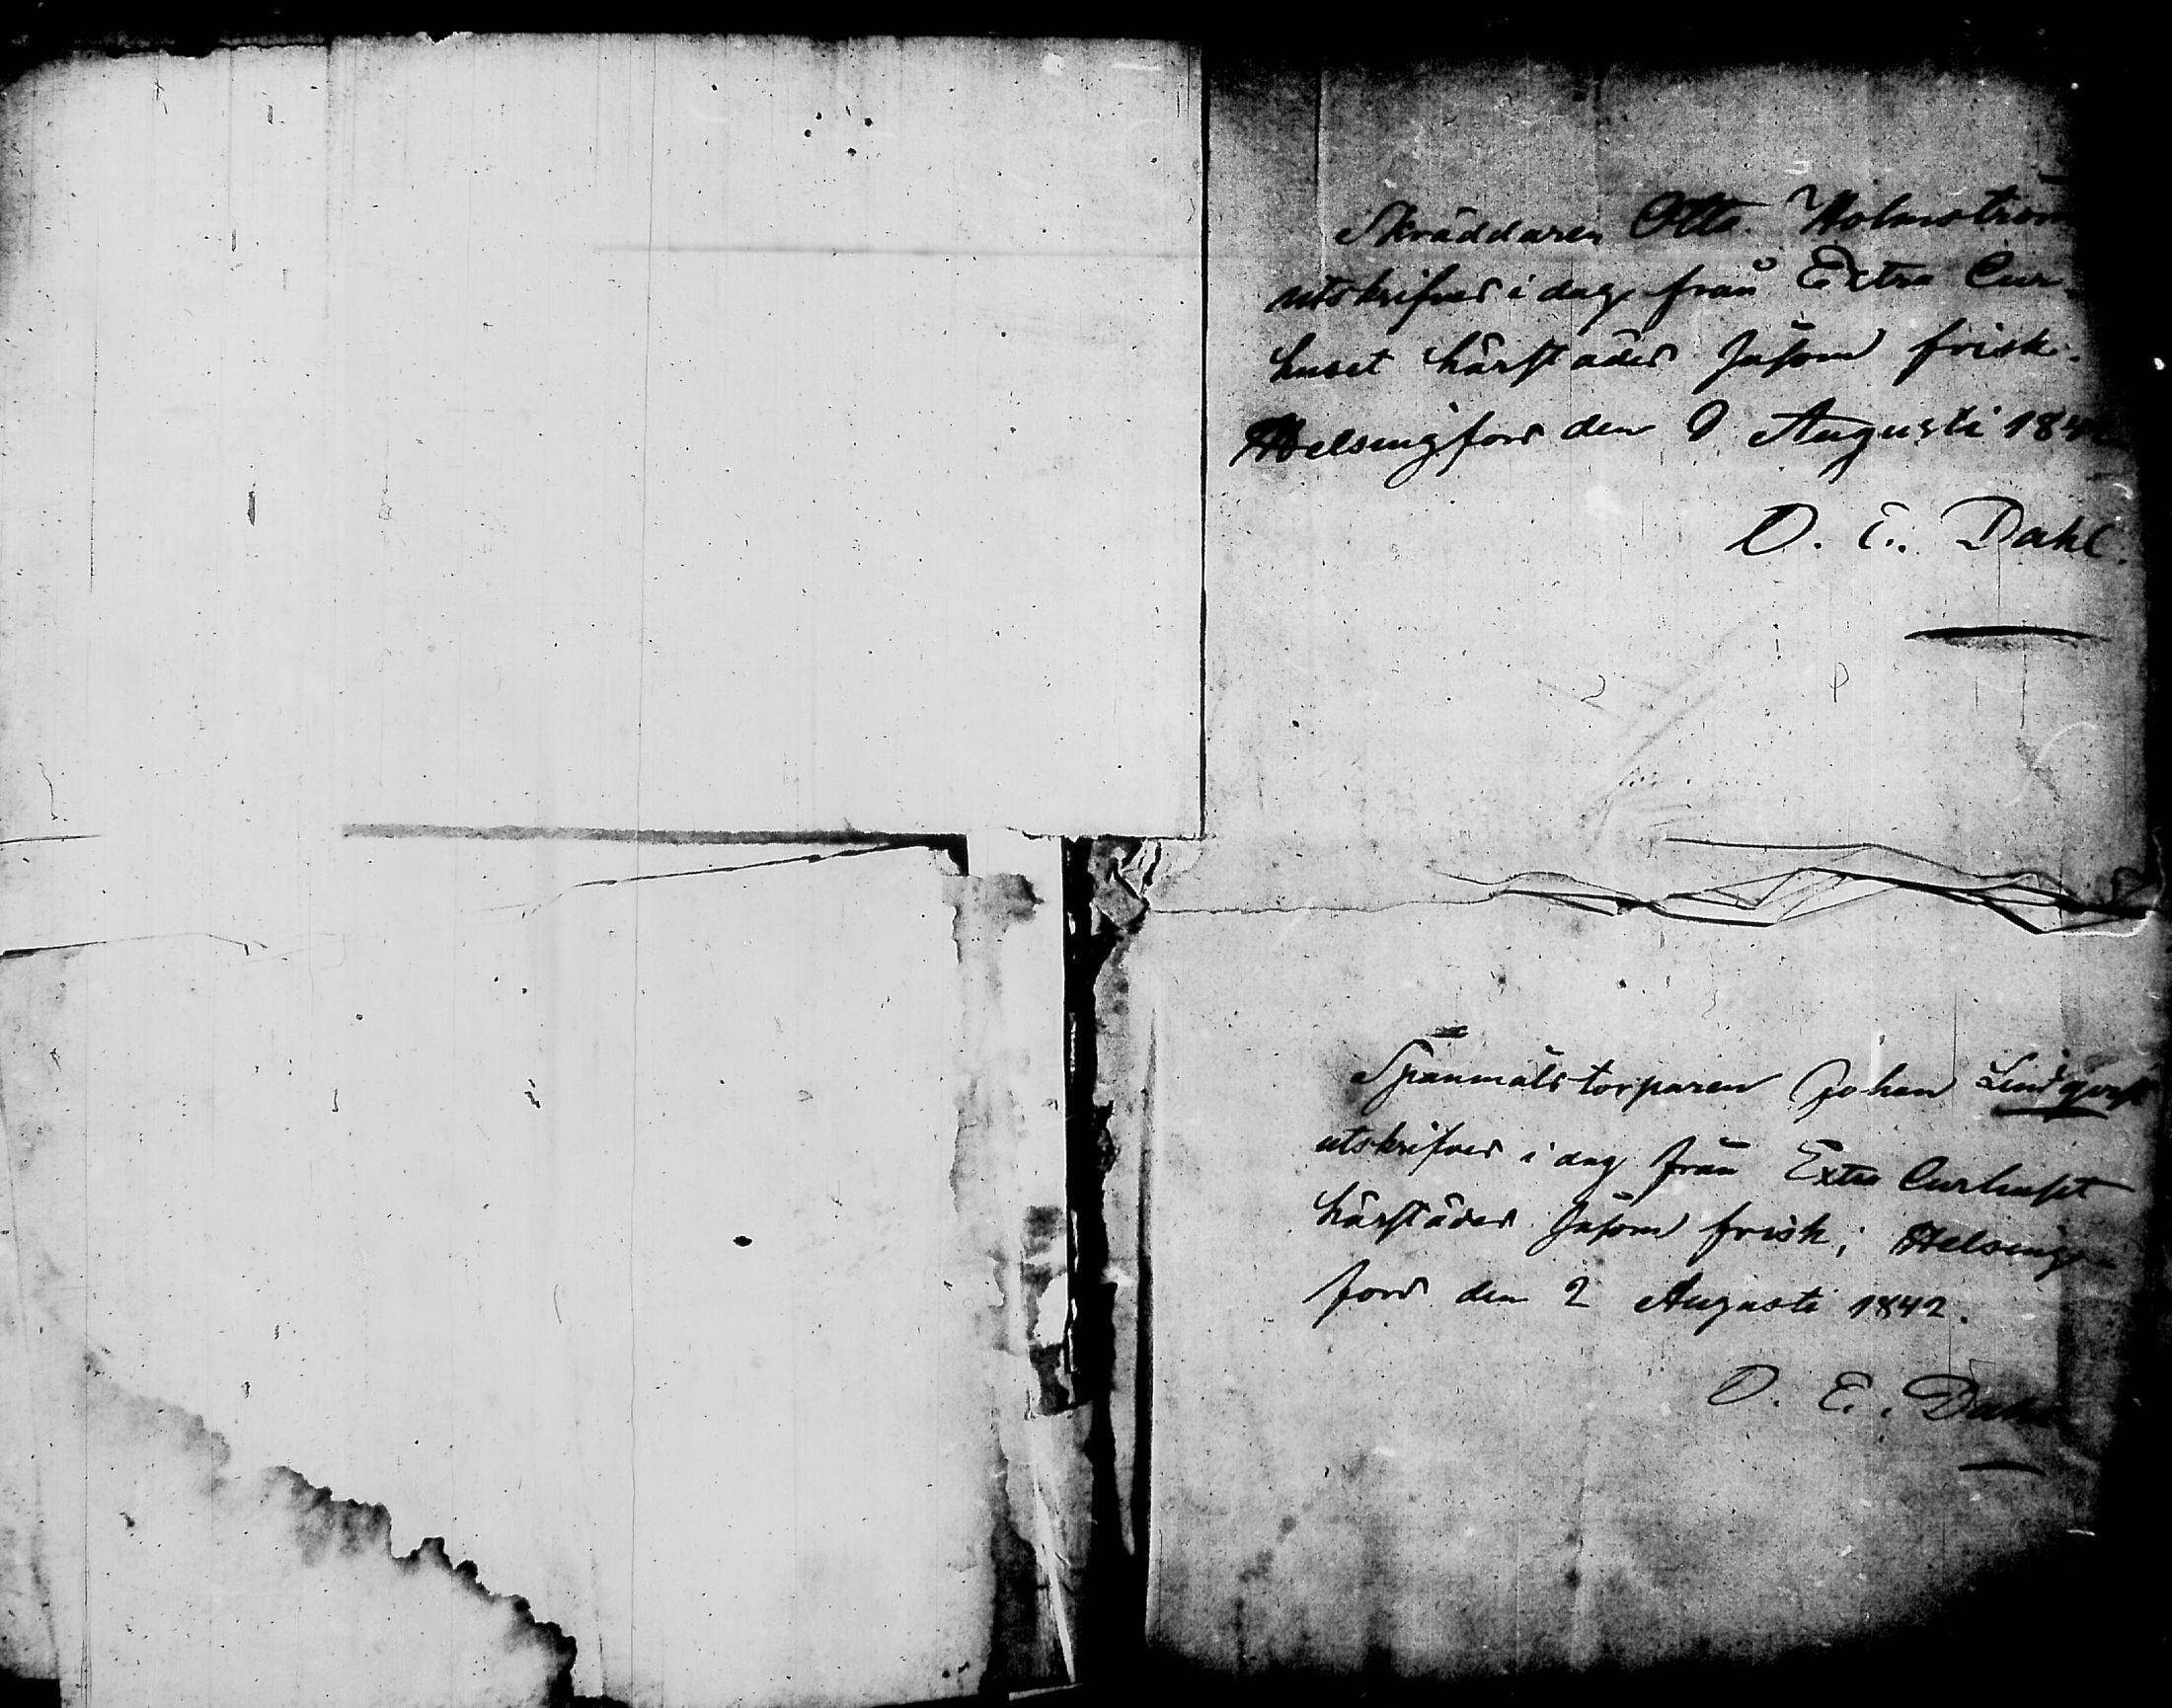 Skräddaren Otto Holmström
utskrifves i dag från Extra Cur-
huset härstädes såsom frisk.
Helsingfors den 9 Augusti 184
O. E. Dahl.
Spanmåls torparen Johan Lindqvist
utskrifves i dag från Extra Curhuset
härstädes såsom frisk; Helsing-
fors den 2 Augusti 1842.
O. E. Dahl